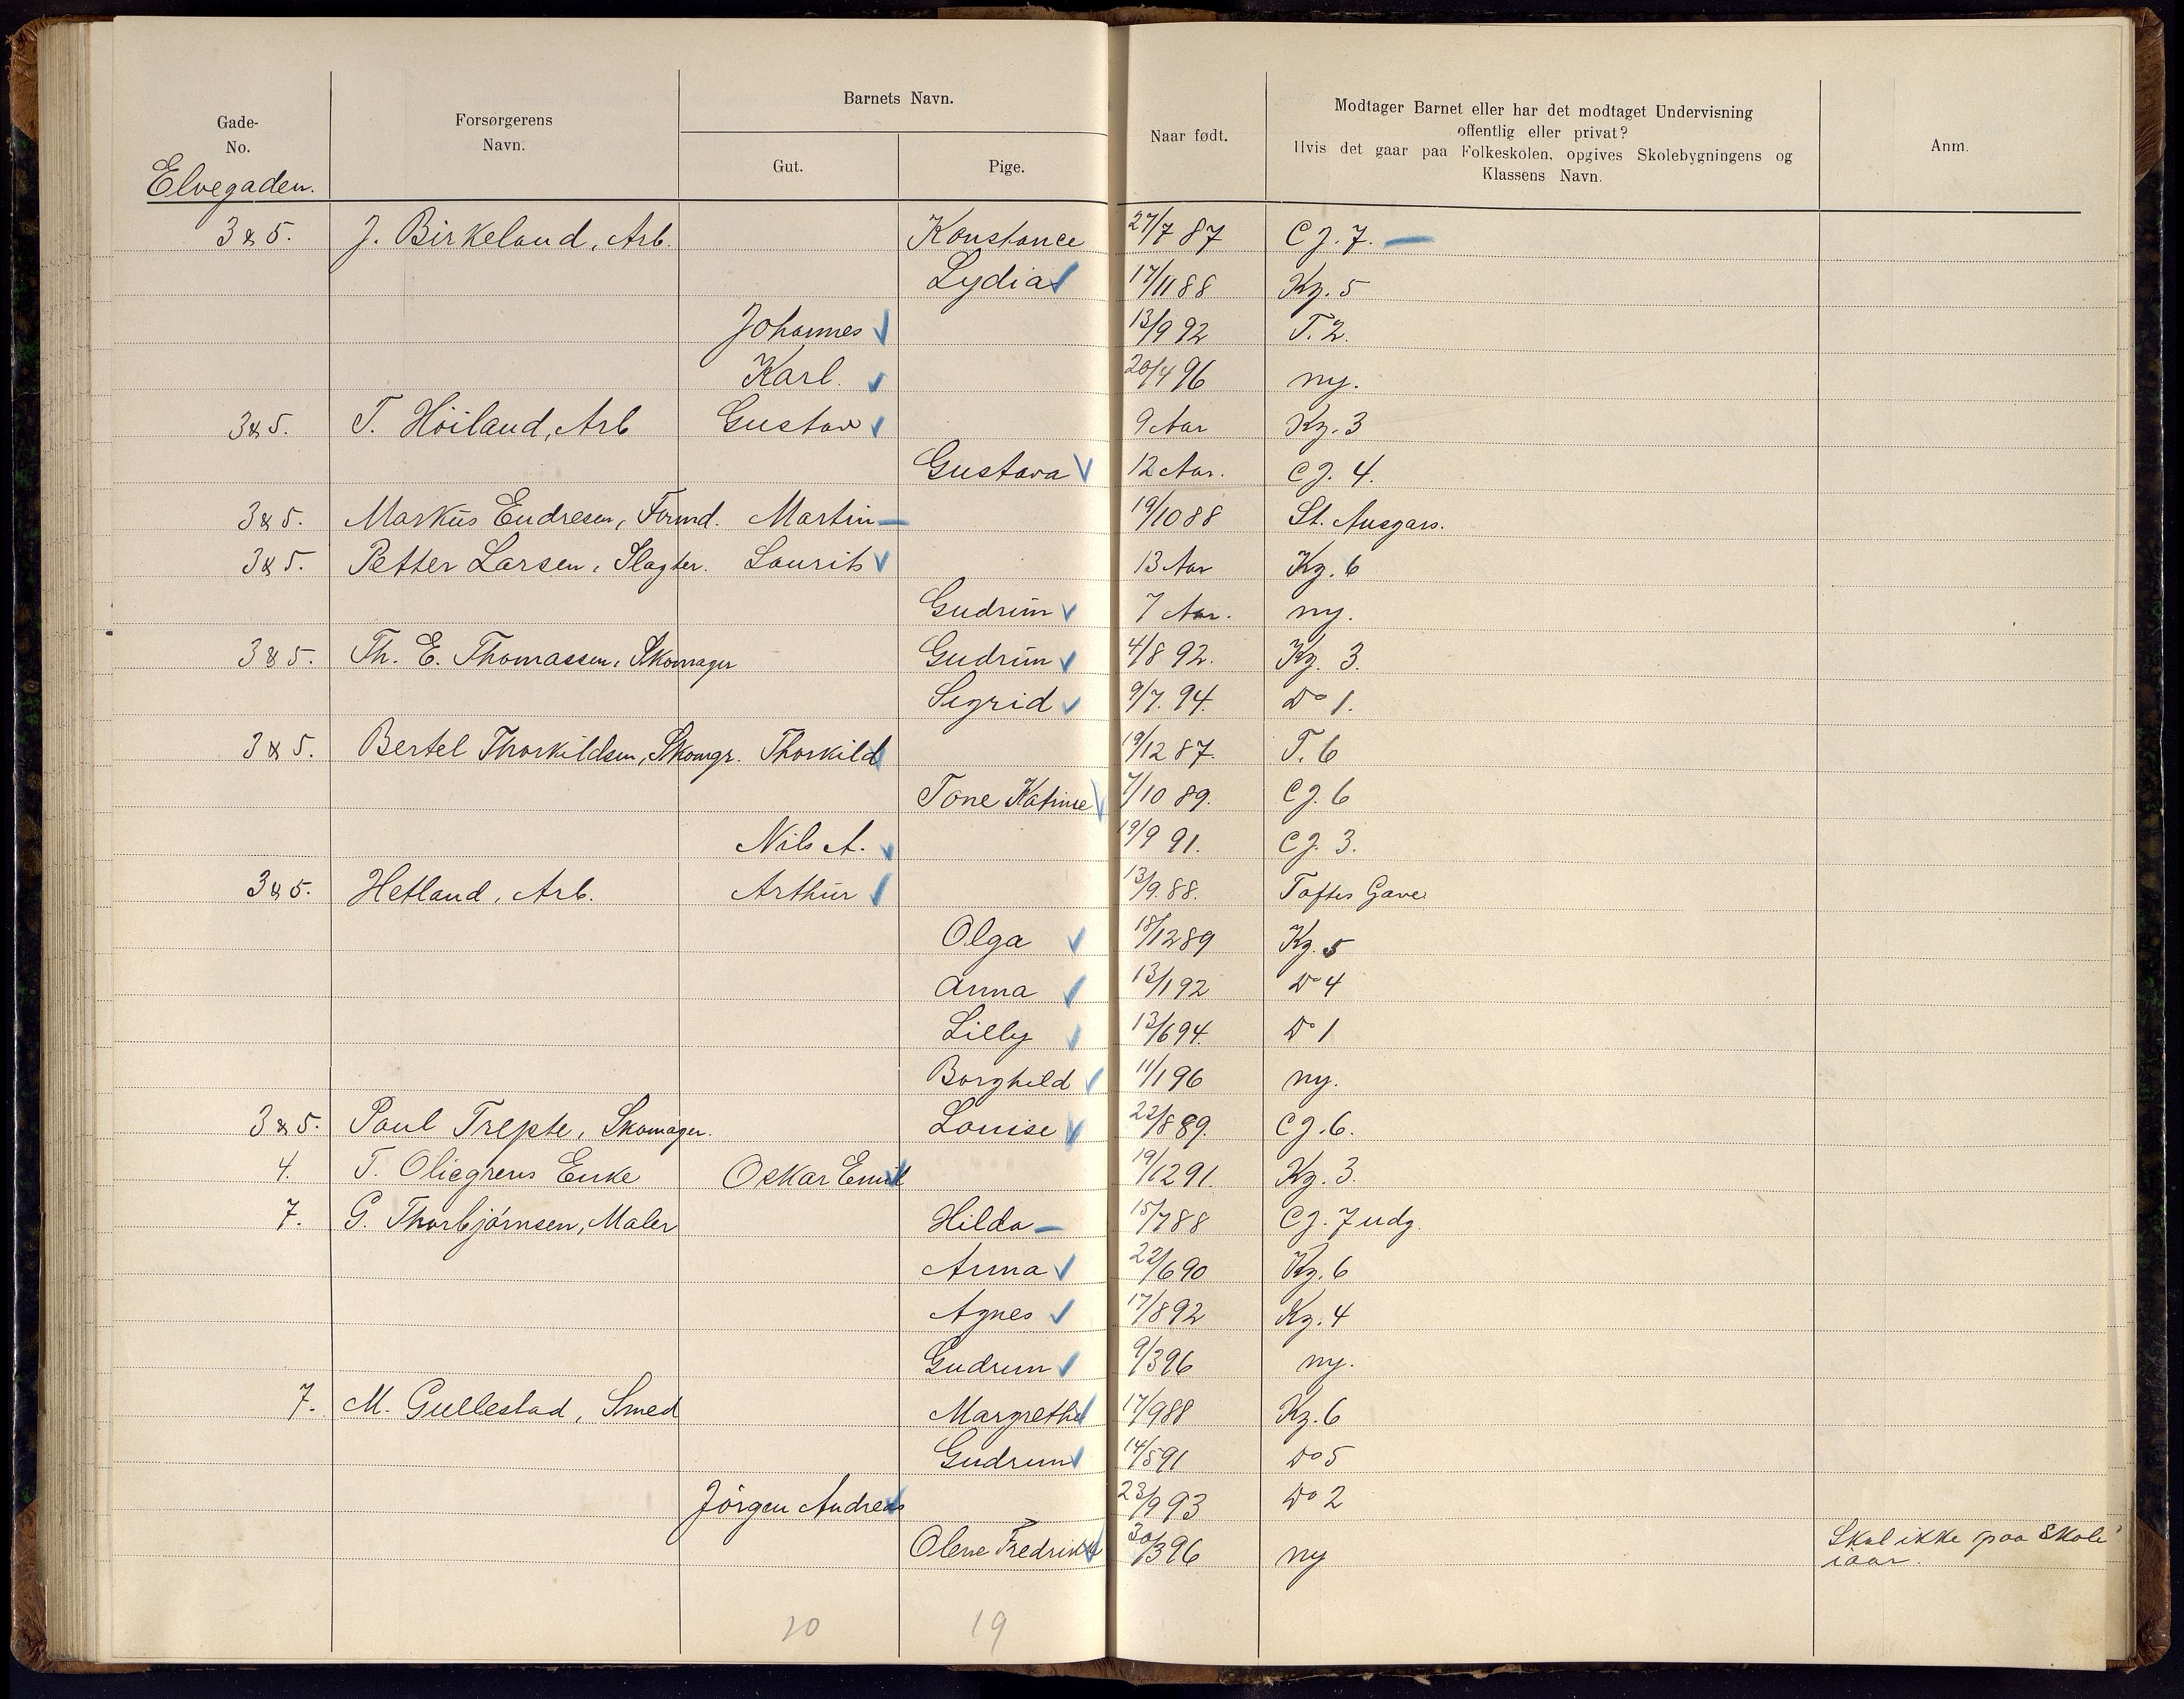 Gade-
No.
Forsørgerens
Navn.
Barnets Navn.
Gut.
Pige.
Naar født.
Modtager Barnet eller har det modtaget Undervisning
offentlig eller privat?
Hvis det gaar paa Folkeskolen, opgives Skolebygningens og
Klassens Navn.
Anm.
Elvegaden.
3 & 5. J. Birkeland, Arb. Konstance 27/7 87 CJ. 7. —
Lydia ✓ 17/11 88 Kg. 5
Johannes ✓ 13/9 92 T. 2.
Karl. ✓ 20/4 96 ny.
3 & 5. T. Höiland, Arb Gustav ✓ 9 Aar Kg. 3
Gustava ✓ 12 Aar. CJ. 4.
3 & 5. Markus Endresen, Formd. Martin — 19/10 88 St. Ansgars.
3 & 5. Petter Larsen, Slagter. Laurits ✓ 13 Aar Kg. 6
Gudrun ✓ 7 Aar. ny.
3 & 5. Th. E. Thomassen, Skomager Gudrun ✓ 4/8 92. Kg. 3.
Sigrid ✓ 9/7. 94. Do 1.
3 & 5. Bertel Thorkildsen, Skomgr. Thorkild ✓ 19/12 87. T. 6
Tone Katinue ✓ 7/10 89. CJ. 6
Nils A. ✓ 19/9 91. CJ. 3.
3 & 5. Hetland, Arb. Arthur ✓ 13/9. 88. Toftes Gave
Olga ✓ 18/12 89 Kg. 5
Anna ✓ 13/1 92 Do 4
Lilly ✓ 13/6 94. Do 1
Borghild ✓ 11/1 96 ny.
3 & 5. Paul Trepte, Skomager. Louise ✓ 22/8 89. CJ. 6.
4. T. Oliegrens Enke Oskar Emil ✓ 19/12 91. Kg. 3.
7. G. Thorbjörnsen, Maler Hilda — 15/7 88 CJ. 7 udg.
Anna ✓ 22/6 90 Kg. 6
Agnes ✓ 17/8 92 Kg. 4
Gudrun ✓ 9/3 96 ny.
7. M. Gullestad, Smed Margrethe ✓ 17/9 88 Kg. 6
Gudrun ✓ 14/5 91 Do 5
Jörgen Andreas ✓ 23/9 93 Do 2
Olene Fredrikke ✓ 30/3 96 ny Skal ikke paa Skole
iaar.
10 19